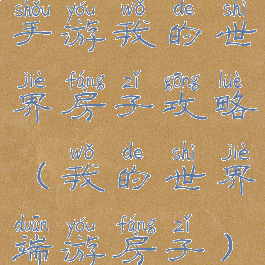 shǒu yóu wǒ de shì
手游我的世
jiè fáng zǐ gōng lüè
界房子攻略
wǒ de shì jiè
（我的世界
duān yóu fáng zǐ
端游房子）